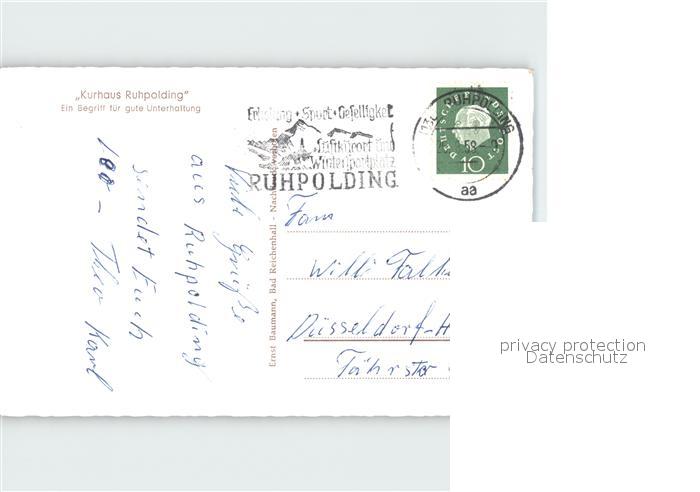 „Kurhaus Ruhpolding"
Ein Begriff für gute Unterhaltung
Viele Grüße
aus Ruhpolding
sendet Euch
Karl
Ernst Baumann, Bad Reichenhall - Nachdruck verboten
Erholung + Sport + Geselligkeit
Luftkurort und
Wintersportplatz
RUHPOLDING
RUHPOLDING
58
aa
DEUTSCHE BUNDESPOST
10
Fam
Willi Falk
Düsseldorf-H
Fährstr
privacy protection
Datenschutz